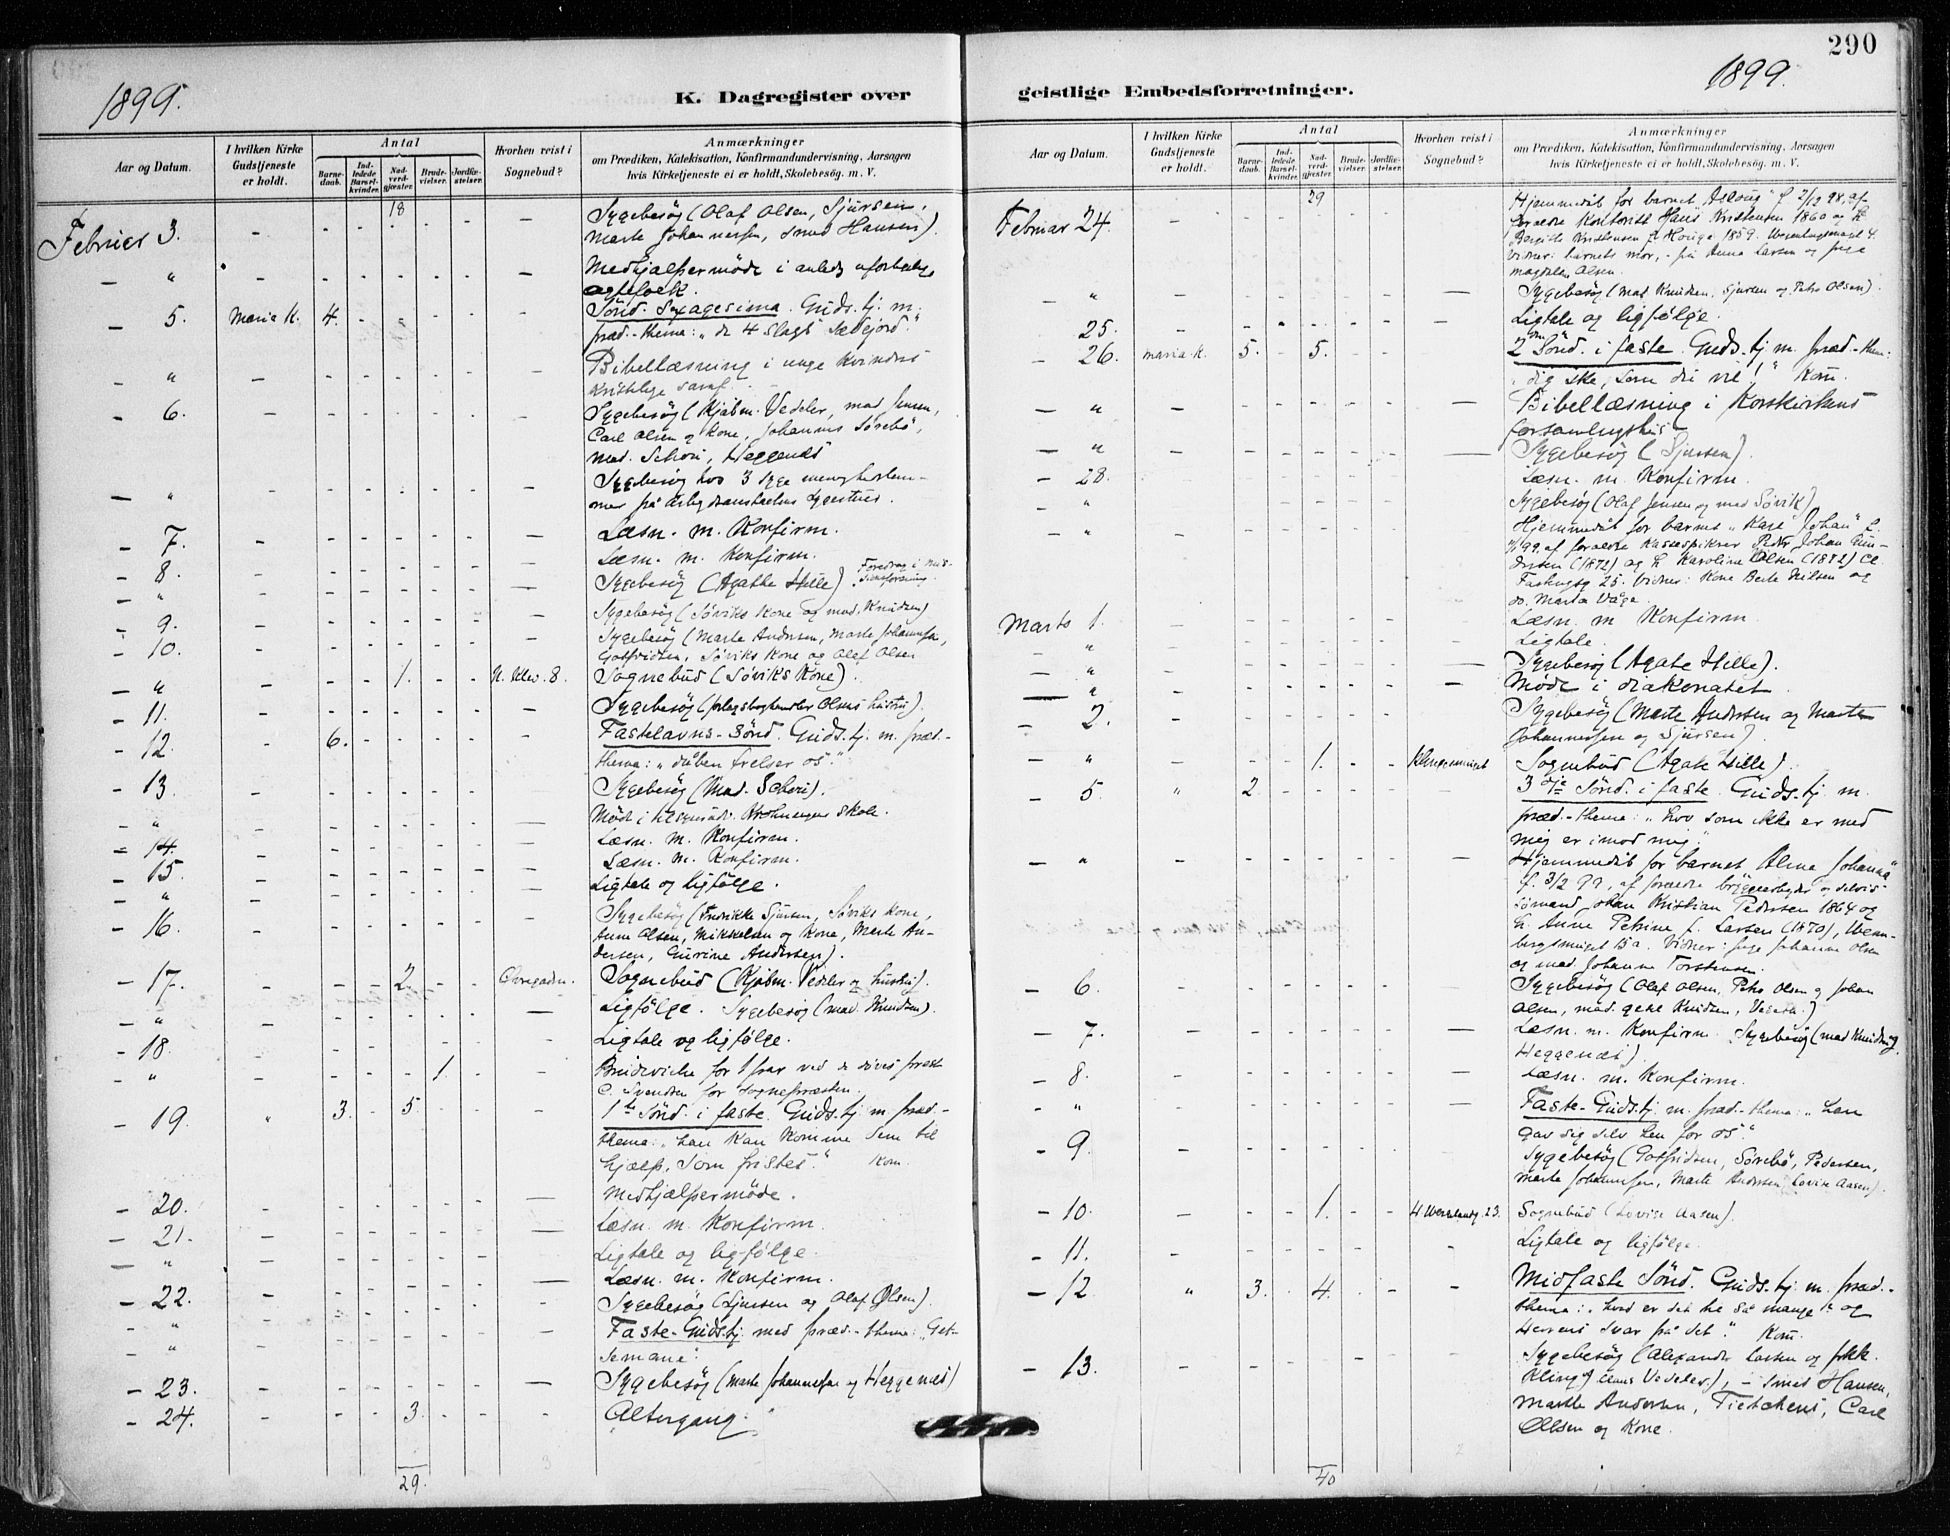 290
1899.
K. Dagregister over
Aar og Datum.
I hvilken Kirke Gudstjeneste er holdt.
Antal
Barnedaab.
Indledede Barselkvinder.
Nadverdgjæster.
Brudevielser.
Jordfæstelser.
Hvorhen reist i Sognebud?
Anmærkninger
om Prædiken, Katekisation, Konfirmandundervisning, Aarsagen
hvis Kirketjeneste ei er holdt, Skolebesøg. m. V.
18
Februar 3. Sygebesøg (Olaf Olsen, Sjursen,
Marte Johannessen, Hansen).
" Medhjælpermøde i anledn
ægtefolk.
5. Maria K. 4. Sønd. Sexagesima. Guds.tj. m.
præd.-thema: "de 4 slags sædejord."
" Bibellæsning i unge kvinders
kristelige samf.
6. Sygebesøg (Kjøbm. Vedeler, mad. Jensen,
Carl Olsen og Kone, Johannes Sørebø,
Mad. Heggenæs
" Sygebesøg hos 3 syge
mer på
7. Læsn. m. Konfirm.
8. Læsn. m. Konfirm.
" Sygebesøg (Agathe Hille) Foredrag i
9. Sygebesøg (Søviks Kone og mad. Knudsen)
10. Sygebesøg (Marte Andersen, Marte Johannessen,
Gotfridsen, Søviks Kone og Olaf Olsen
" 1. 8. Sognebud (Søviks Kone).
11. Sygebesøg (forlagsboghandler Olsens hustru).
12. 6. Fastelavns-Sønd. Guds.tj. m. præd.-
thema:
13. Sygebesøg (Mad. ).
" Møde i tilsynsråd. skole.
14. Læsn. m. Konfirm.
15. Læsn. m. Konfirm.
" Ligtale og ligfølge.
16. Sygebesøg ( Sjursen, Søviks Kone,
Olsen, Mikkelsen og Kone, Marte An-
dersen, Gurine Andersen).
17. 2. Øvregaden. Sognebud (Kjøbm. Vedeler og hustru).
" Ligfølge. Sygebesøg (mad. Knudsen).
18. Ligtale og ligfølge.
" 1. Brudevielse for 1 par ved de døves prest
C. Svendsen for sognepræsten.
19. " 3. 5. 1ste Sønd. i faste. Guds.tj. m. præd.-
thema: "han kan komme dem til
hjælp, som fristes." Kom.
20. Medhjælpermøde.
21. Læsn. m. Konfirm.
" Ligtale og ligfølge.
22. Læsn. m. Konfirm.
" Sygebesøg (Sjursen og Olaf Olsen).
" Faste-Guds.tj. med præd.-thema: "Get-
semane".
23. Sygebesøg (Marte Johannessen og Heggenæs)
24. 3. Altergang.
29.
geistlige Embedsforretninger.
1899.
Aar og Datum.
I hvilken Kirke Gudstjeneste er holdt.
Antal
Barnedaab.
Indledede Barselkvinder.
Nadverdgjæster.
Brudevielser.
Jordfæstelser.
Hvorhen reist i Sognebud?
Anmærkninger
om Prædiken, Katekisation, Konfirmandundervisning, Aarsagen
hvis Kirketjeneste ei er holdt, Skolebesøg. m. V.
29
Februar 24. Hjemmedåb for barnet "Aslaug" f. 2/12 98, af
forældre Kontorist Hans Kristensen 1860 og H.
Bergitte Kristensen f. Houge 1859. 4.
Vidner: barnets mor, frk. Anna Larsen og pige
Magdalene Olsen.
" Sygebesøg (mad. Knudsen, Sjursen og Petra Olsen).
25. Ligtale og ligfølge.
26. Maria K. 5. 5. 2den Sønd. i faste. Guds.tj. m. præd.-them:
"dig ske, som du vil!" Kom.
" Bibellæsning i Korskirkens
forsamlingshus
" Sygebesøg (Sjursen).
28. Læsn. m. Konfirm.
" Sygebesøg (Olaf Jensen og mad. Søvik)
" Hjemmedåb for barnet "Kåre Johan" f.
99 af forældre Peder Johan
(1872) og H. Karoline Olsen (1872)
25. Vidner: Kone Berte Nilsen og
do. Marta Våge.
Marts 1. Læsn. m. Konfirm.
" Ligtale.
" Sygebesøg (Agate Hille).
" Møde i diakonatet
2. Sygebesøg (Marte Andersen og Marte
Johannessen og Sjursen)
" 1. Klingesmuget Sognebud (Agate Hille).
5. " 2. 3die Sønd. i faste. Guds.tj. m.
præd.-thema: "hvo som ikke er med
mig er imod mig."
" Hjemmedåb for barnet "Alma Johanna"
f. 3/2 99, af forældre bryggearbejder og
Johan Kristian Pedersen 1864 og
H. Anne Petrine f. Larsen (1870),
15a. Vidner: pige Johanne Olsen
og mad. Johanne Torstensen.
6. Sygebesøg (Olaf Olsen, Petra Olsen og Johan
Olsen, mad. Knudsen, )
7. Læsn. m. Konfirm. Sygebesøg (mad Knudsen og
Heggenæs).
8. Læsn. m. Konfirm.
" Faste-Guds.tj. m. præd.-thema: "han
gav sig selv hen for os."
9. Sygebesøg (Gotfridsen, Sørebø, Pedersen,
Marte Johannessen, Marte Andersen Lovise Aasen).
10. 1. 23. Sognebud (Lovise Aasen).
11. Ligtale og ligfølge.
12. " 3. 4. Midfaste Sønd. Guds.tj. m. præd.-
thema: "hvad er det til så mange?" og
Herrens svar på det." Kom.
13. Sygebesøg (Alexander Larsen og frkk.
Kling, Claus Vedeler), Hansen,
Marthe Andersen, Carl
Olsen og Kone.
40